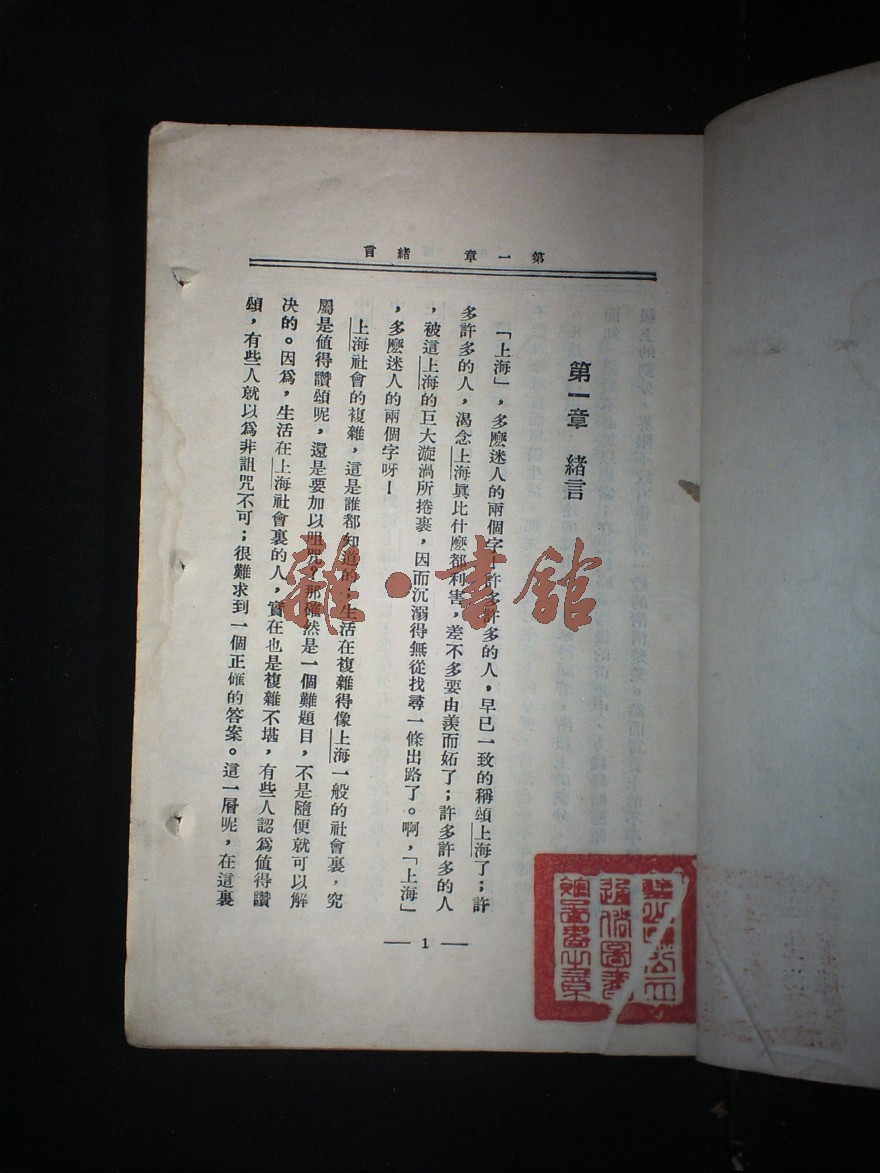 第一章 緒言
第一章 緒言
「上海」，多麽迷人的兩個字！許多許多的人，早已一致的稱頌上海了；許
多許多的人，渴念上海眞比什麽都利害，差不多要由羨而妬了；許多許多的人
，被這上海的巨大漩渦所捲裹，因而沉溺得無從找尋一條出路了。啊，「上海」
，多麽迷人的兩個字呀！
上海社會的複雜，這是誰都知道的；生活在複雜得像上海一般的社會裏，究
屬是值得讚頌呢，還是要加以咀咒？那確然是一個難題目，不是隨便就可以解
決的。因爲，生活在上海社會裏的人，實在也是複雜不堪，有些人認爲值得讚
頌，有些人就以爲非詛咒不可；很難求到一個正確的答案。這一層呢，在這裏
— 1 —
雜·書館